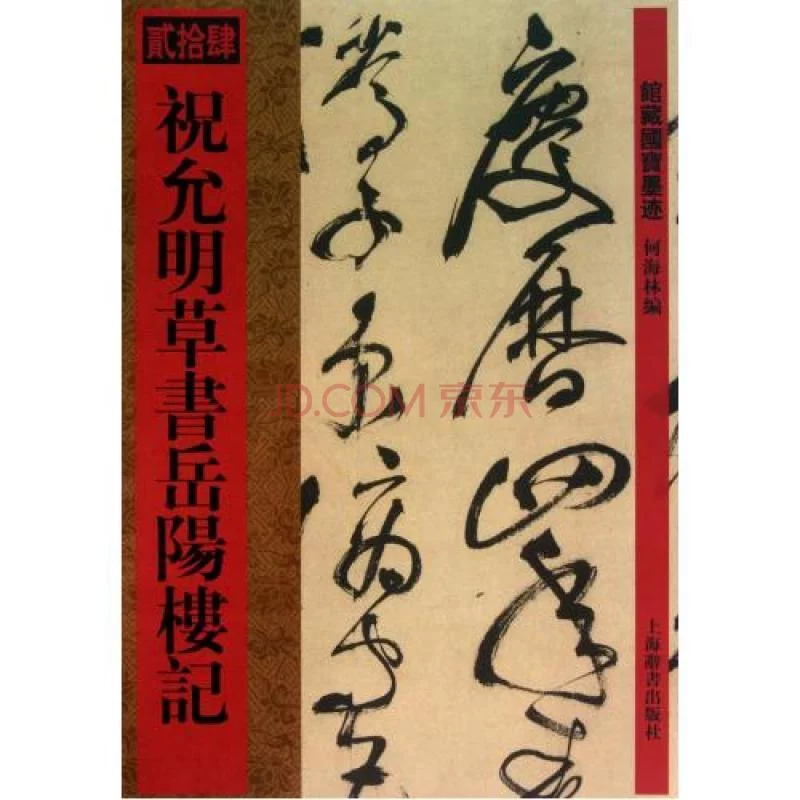 貳拾肆
祝允明草書岳陽樓記
慶曆四年
滕子京謫守
館藏國寶墨迹
何海林編
上海辭書出版社
JD.COM 京东